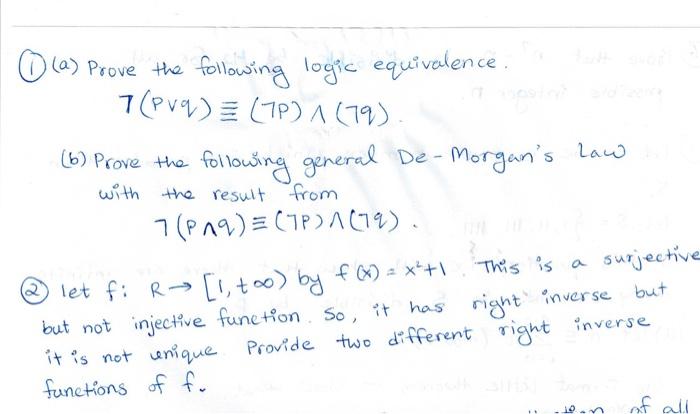 ① (a) Prove the following logic equivalence.
⅂(P∨q) ≡ (⅂P) ∧ (⅂q).
(b) Prove the following general De-Morgan's Law
with the result from
⅂(P∧q) ≡ (⅂P) ∧ (⅂q).
② let f: R → [1, +∞) by f(x) = x²+1 This is a surjective
but not injective function. So, it has right inverse but
it is not unique. Provide two different right inverse
functions of f.
of all